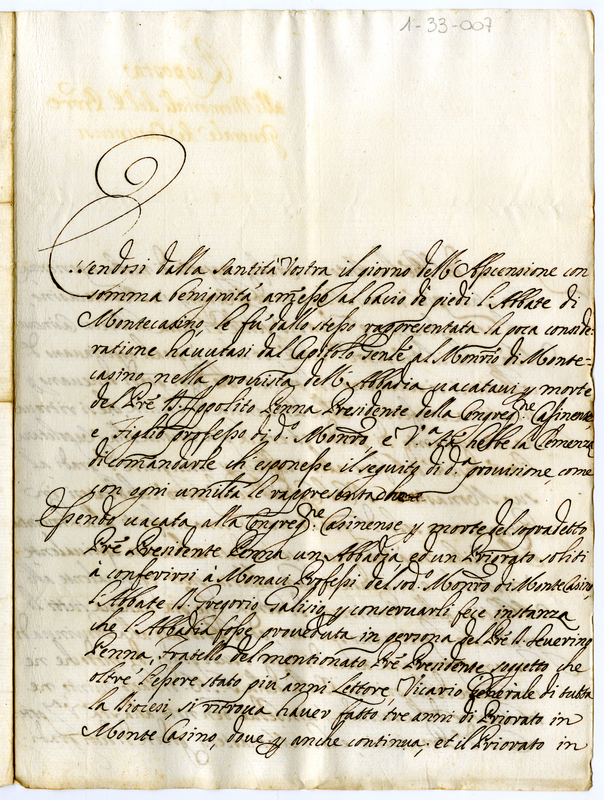 1-33-007
Essendosi dalla Santità Vostra il giorno dell'Ascensione con
somma benignità amesso al bacio de piedi l'Abbate di
Montecasino, le fù dallo stesso rappresentata la poca conside=
ratione havutasi dal Capitolo Gen̄le al Monrīo di Monte=
casino, nella provista dell'Abbadia vacatavi p morte
del Prē D. Ippolito Penna Presidente della Congreg.ne Casinense
e Figlio professo di d.o Monrō, e V.a S.tà hebbe la Clemenza
di comandarle ch'esponesse il seguito di d.a provisione, come
con ogni umiltà le rappresenta
Essendo vacata alla Congreg.ne Casinense p morte del sopradetto
Prē Presidente Penna un Abbadia, ed un Priorato soliti
à conferirsi à Monaci Professi del sod.o Monrō di Monte Casino,
l'Abbate D. Gregorio Galisio p conservarli fece instanza
che l'Abbadia fosse proveduta in persona del Prē D. Severino
Penna, fratello del mentionato Prē Presidente, sogetto che
oltre l'essere stato più anni Lettore, Vicario Generale di tutta
la Diocesi, si ritrova haver fatto tre anni di Priorato in
Monte Casino, dove p anche continua; et il Priorato in